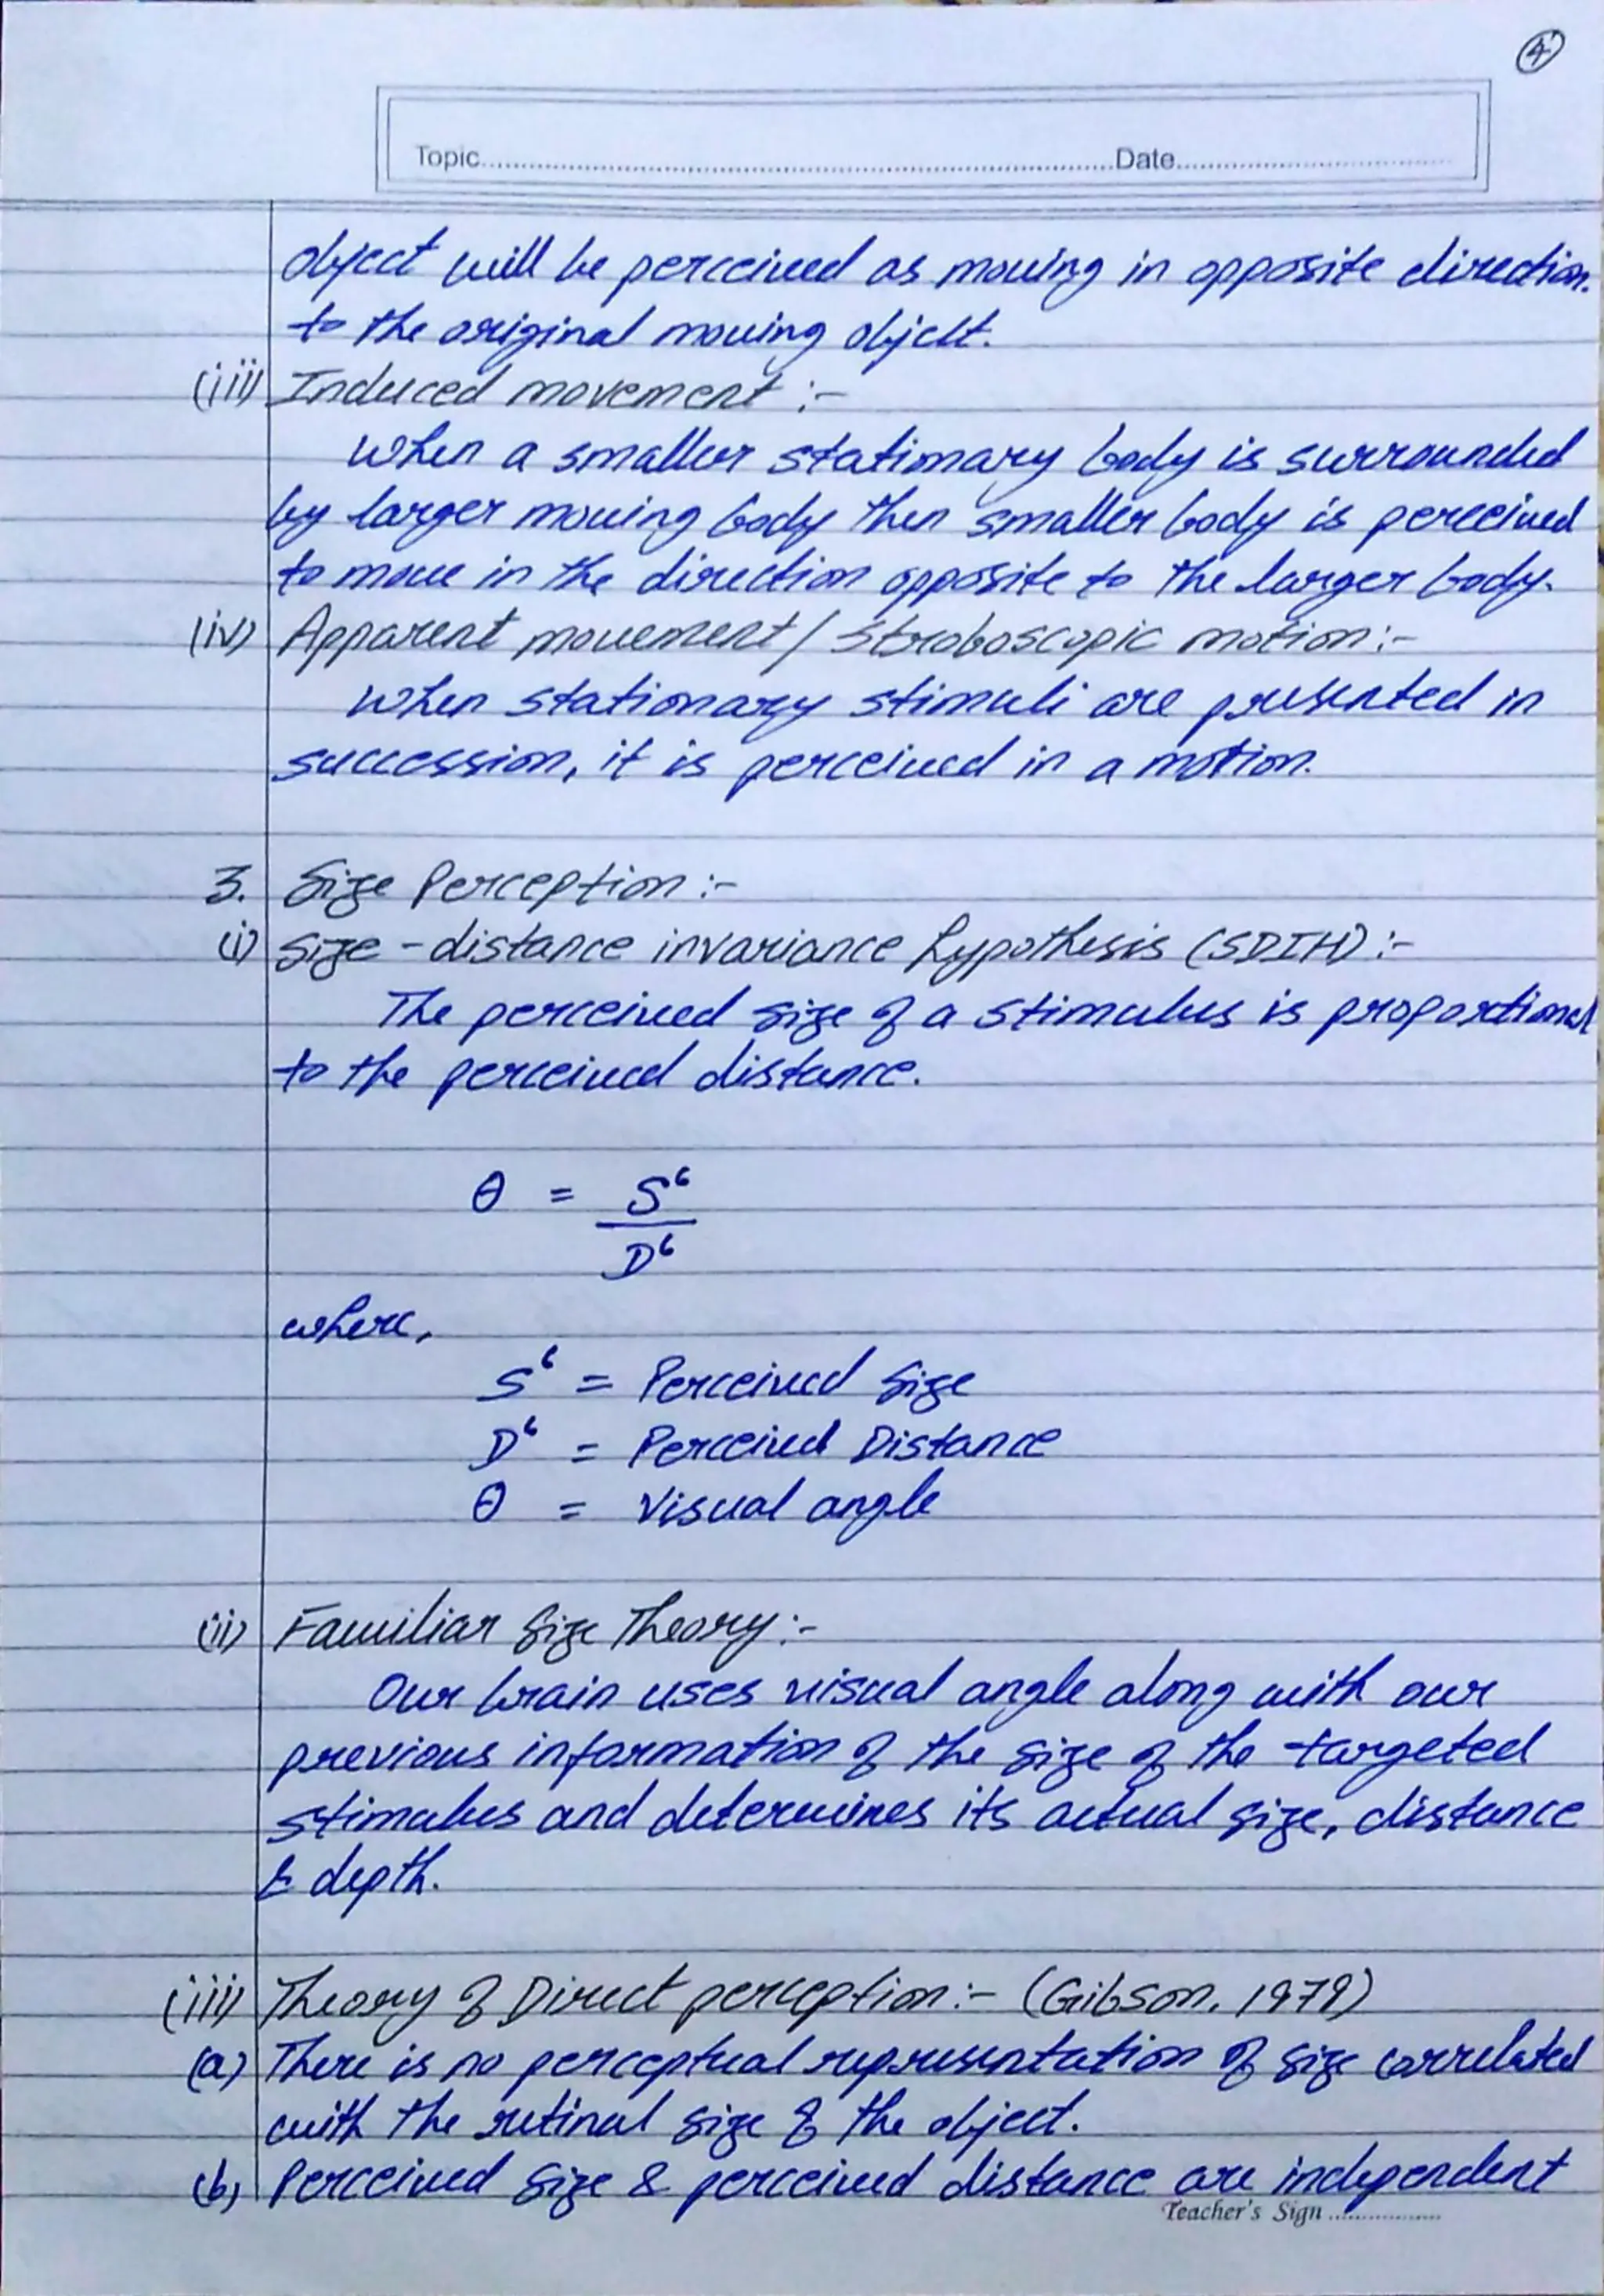 4
Topic.......................Date.......................
object will be perceived as moving in opposite direction.
to the original moving object.
(iii) Induced movement :-
When a smaller stationary body is surrounded
by larger moving body then smaller body is perceived
to move in the direction opposite to the larger body.
(iv) Apparent movement / Stroboscopic motion:-
When stationary stimuli are presented in
succession, it is perceived in a motion.
3. Size Perception :-
(i) Size - distance invariance hypothesis (SDIH) :-
The perceived size of a stimulus is proportional
to the perceived distance.
θ = S‘
D‘
where,
S‘ = Perceived Size
D‘ = Perceived Distance
θ = Visual angle
(ii) Familiar Size Theory:-
Our brain uses visual angle along with our
previous information of the size of the targeted
stimulus and determines its actual size, distance
& depth.
(iii) Theory of Direct perception:- (Gibson, 1979)
(a) There is no perceptual representation of size correlated
with the retinal size of the object.
(b) Perceived size & perceived distance are independent
Teacher's Sign .................